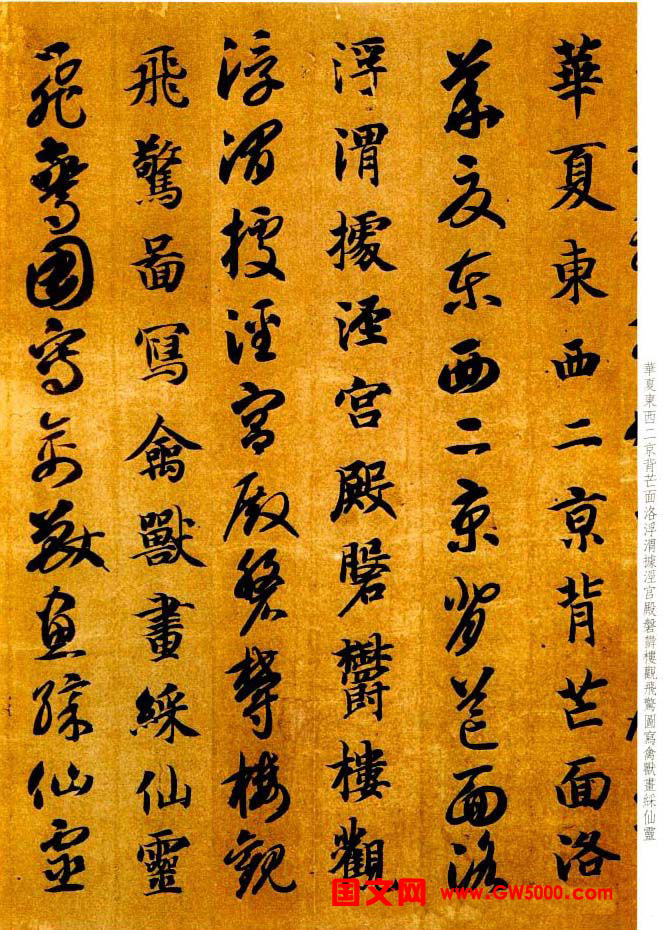 華夏東西二京背芒面洛
華夏东西二京背芒面洛
浮渭據涇宫殿磐欝樓觀
浮渭據涇宫殿磐欝樓觀
飛驚啚寫禽獸畫綵仙靈
飛驚圖寫禽獸畫綵仙靈
華夏東西二京背芒面洛浮渭據涇宫殿磐欝樓觀飛驚圖寫禽獸畫綵仙靈
国文网 www.GW5000.com